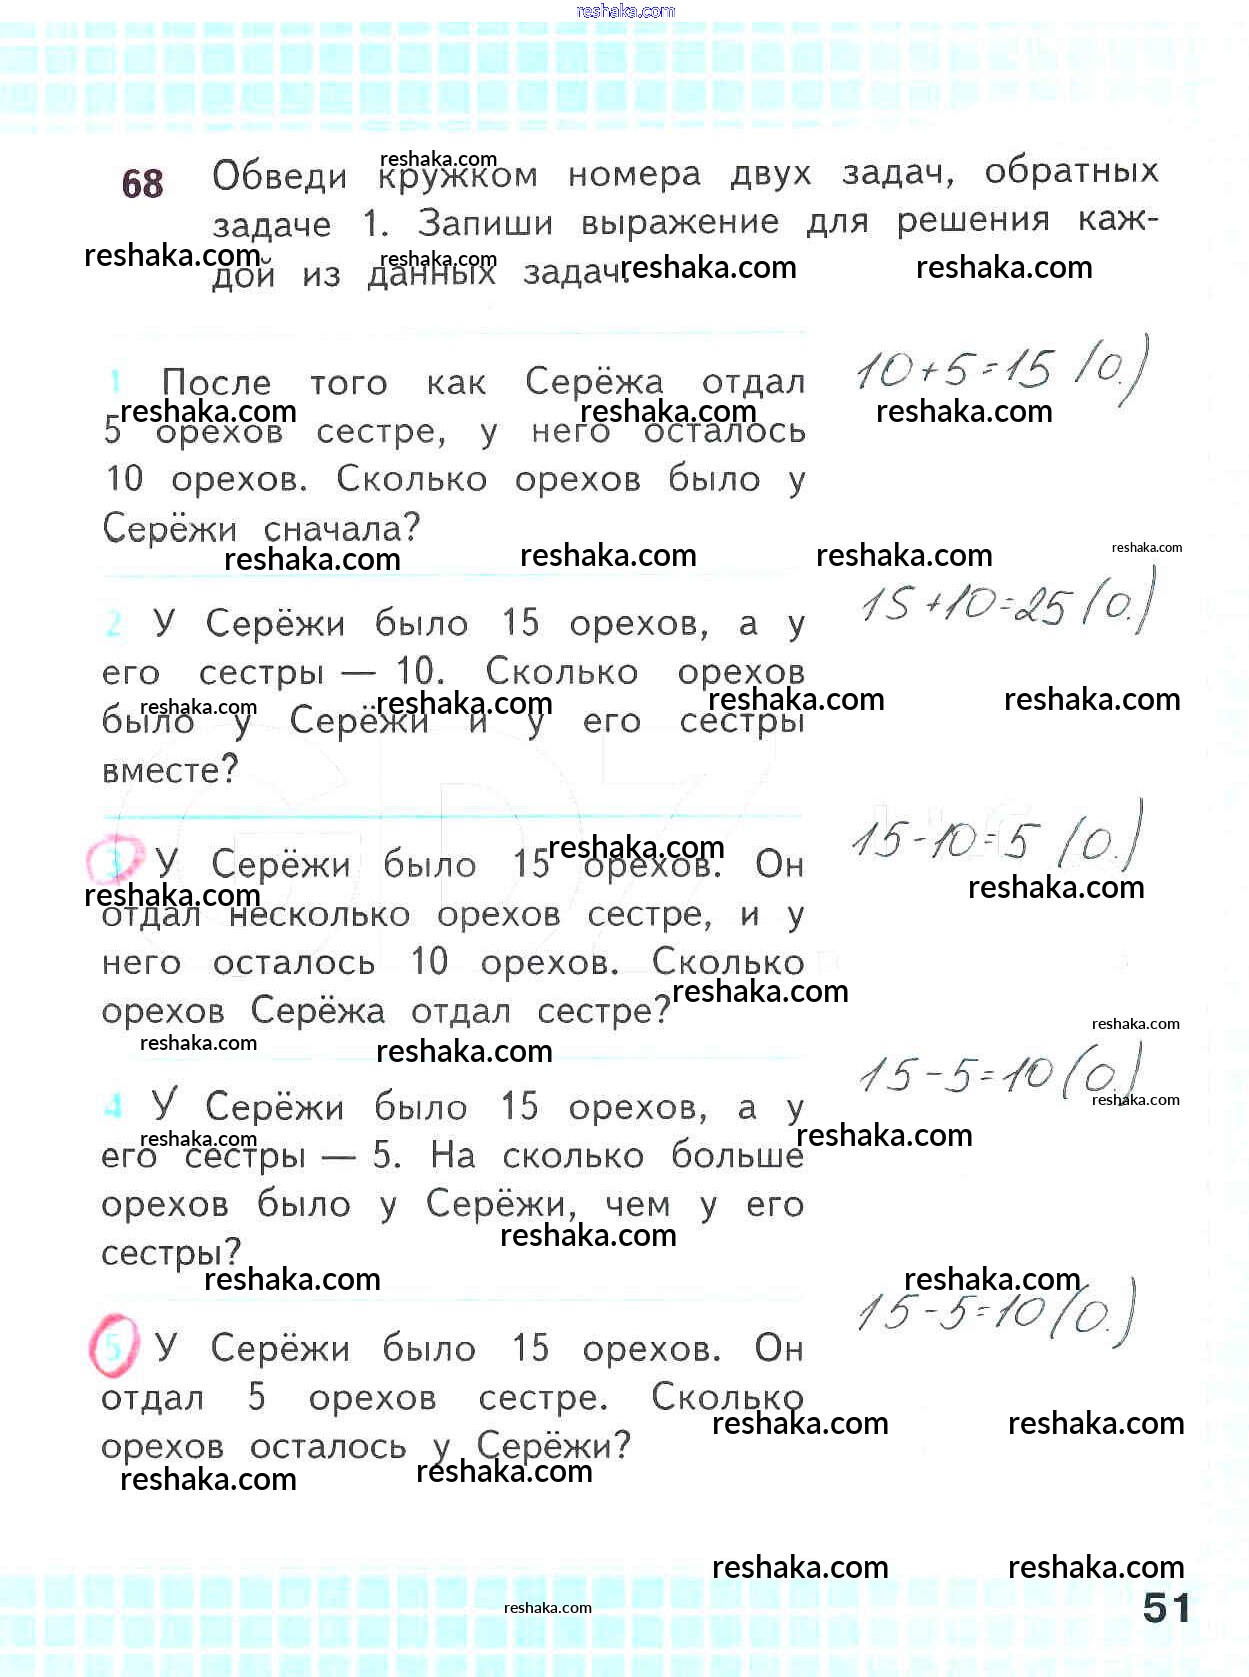 reshaka.com
68 Обведи кружком номера двух задач, обратных
reshaka.com
задаче 1. Запиши выражение для решения каж-
reshaka.com reshaka.com reshaka.com reshaka.com
дой из данных задач.
1 После того как Серёжа отдал 10+5=15 (о.)
reshaka.com reshaka.com reshaka.com
5 орехов сестре, у него осталось
10 орехов. Сколько орехов было у
Серёжи сначала?
reshaka.com reshaka.com reshaka.com reshaka.com
2 У Серёжи было 15 орехов, а у 15+10=25 (о.)
его сестры — 10. Сколько орехов
reshaka.com reshaka.com reshaka.com reshaka.com
было у Серёжи и у его сестры
вместе?
GDZ
3 У Серёжи было 15 орехов. Он 15-10=5 (о.)
reshaka.com reshaka.com reshaka.com
отдал несколько орехов сестре, и у
него осталось 10 орехов. Сколько
reshaka.com
орехов Серёжа отдал сестре?
reshaka.com reshaka.com reshaka.com
4 У Серёжи было 15 орехов, а у 15-5=10 (о.)
reshaka.com reshaka.com reshaka.com
его сестры — 5. На сколько больше
орехов было у Серёжи, чем у его
reshaka.com
сестры?
reshaka.com reshaka.com
5 У Серёжи было 15 орехов. Он 15-5=10 (о.)
отдал 5 орехов сестре. Сколько
reshaka.com reshaka.com
орехов осталось у Серёжи?
reshaka.com reshaka.com
reshaka.com reshaka.com
reshaka.com
51